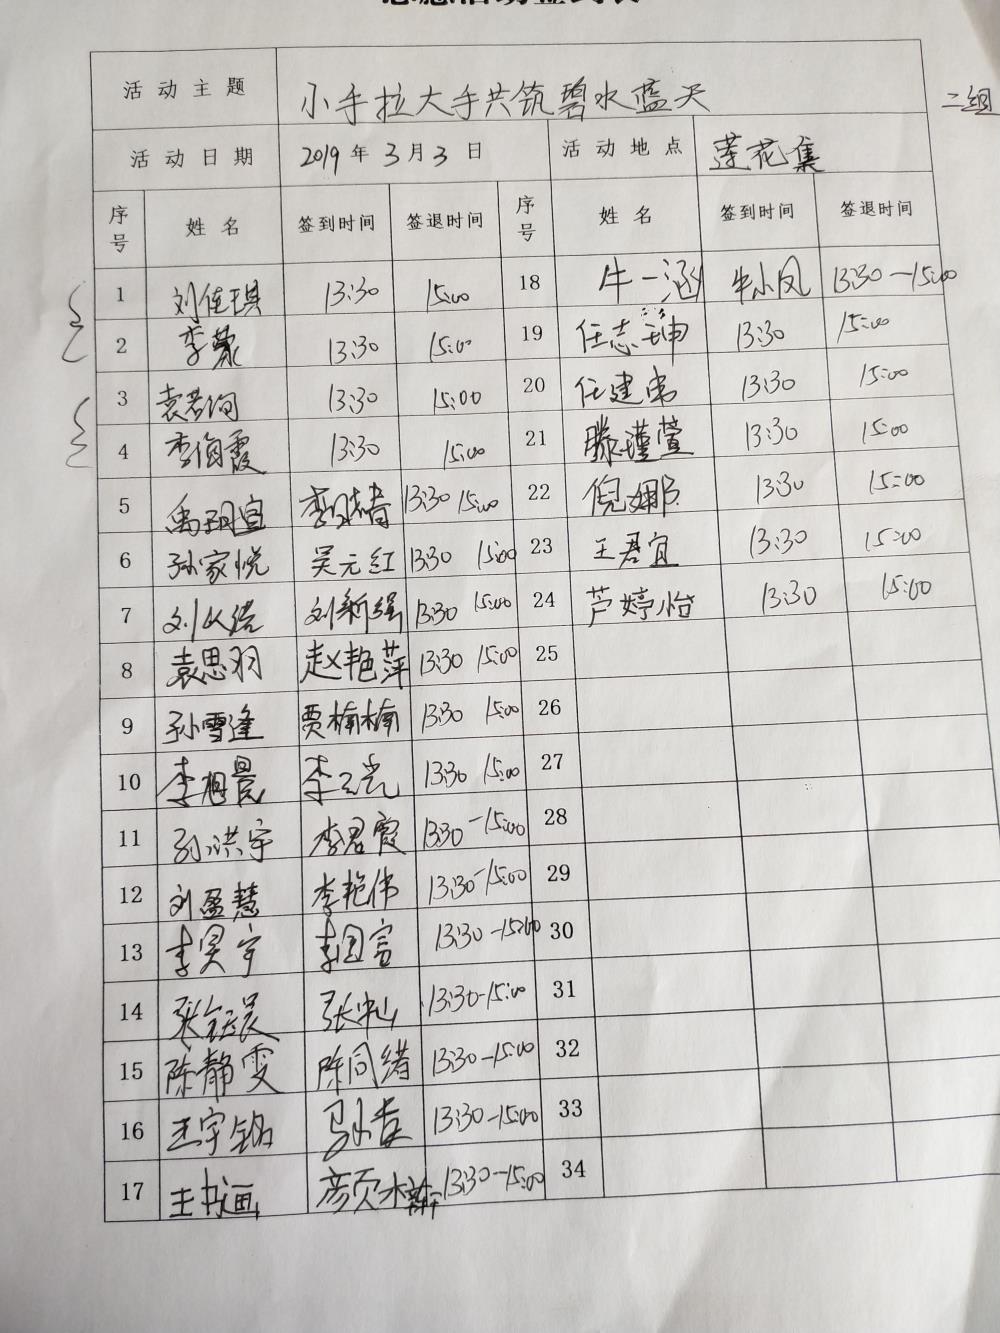 活动主题 小手拉大手共筑碧水蓝天
二组
活动日期 2019年3月3日 活动地点 莲花集
序号 姓名 签到时间 签退时间 序号 姓名 签到时间 签退时间
1 刘佳琪 13:30 15:00 18 牛一涵 牛小凤 13:30-15:00
2 李蒙 13:30 15:00 19 任志坤 13:30 15:00
3 袁若询 13:30 15:00 20 任建忠 13:30 15:00
4 李俏霞 13:30 15:00 21 滕瑾萱 13:30 15:00
5 13:30 15:00 22 倪娜 13:30 15:00
6 孙家悦 吴元红 13:30 15:00 23 王君宜 13:30 15:00
7 刘新强 13:30 15:00 24 芦婷怡 13:30 15:00
8 袁思羽 赵艳萍 13:30 15:00 25
9 孙雪逢 贾楠楠 13:30 15:00 26
10 13:30 15:00 27
11 孙洪宇 李君霞 13:30-15:00 28
12 刘盈慧 李艳伟 13:30-15:00 29
13 李昊宇 李国富 13:30-15:00 30
14 张钰晨 张中山 13:30-15:00 31
15 陈静雯 陈同绪 13:30-15:00 32
16 马小春 13:30-15:00 33
17 王书画 13:30-15:00 34